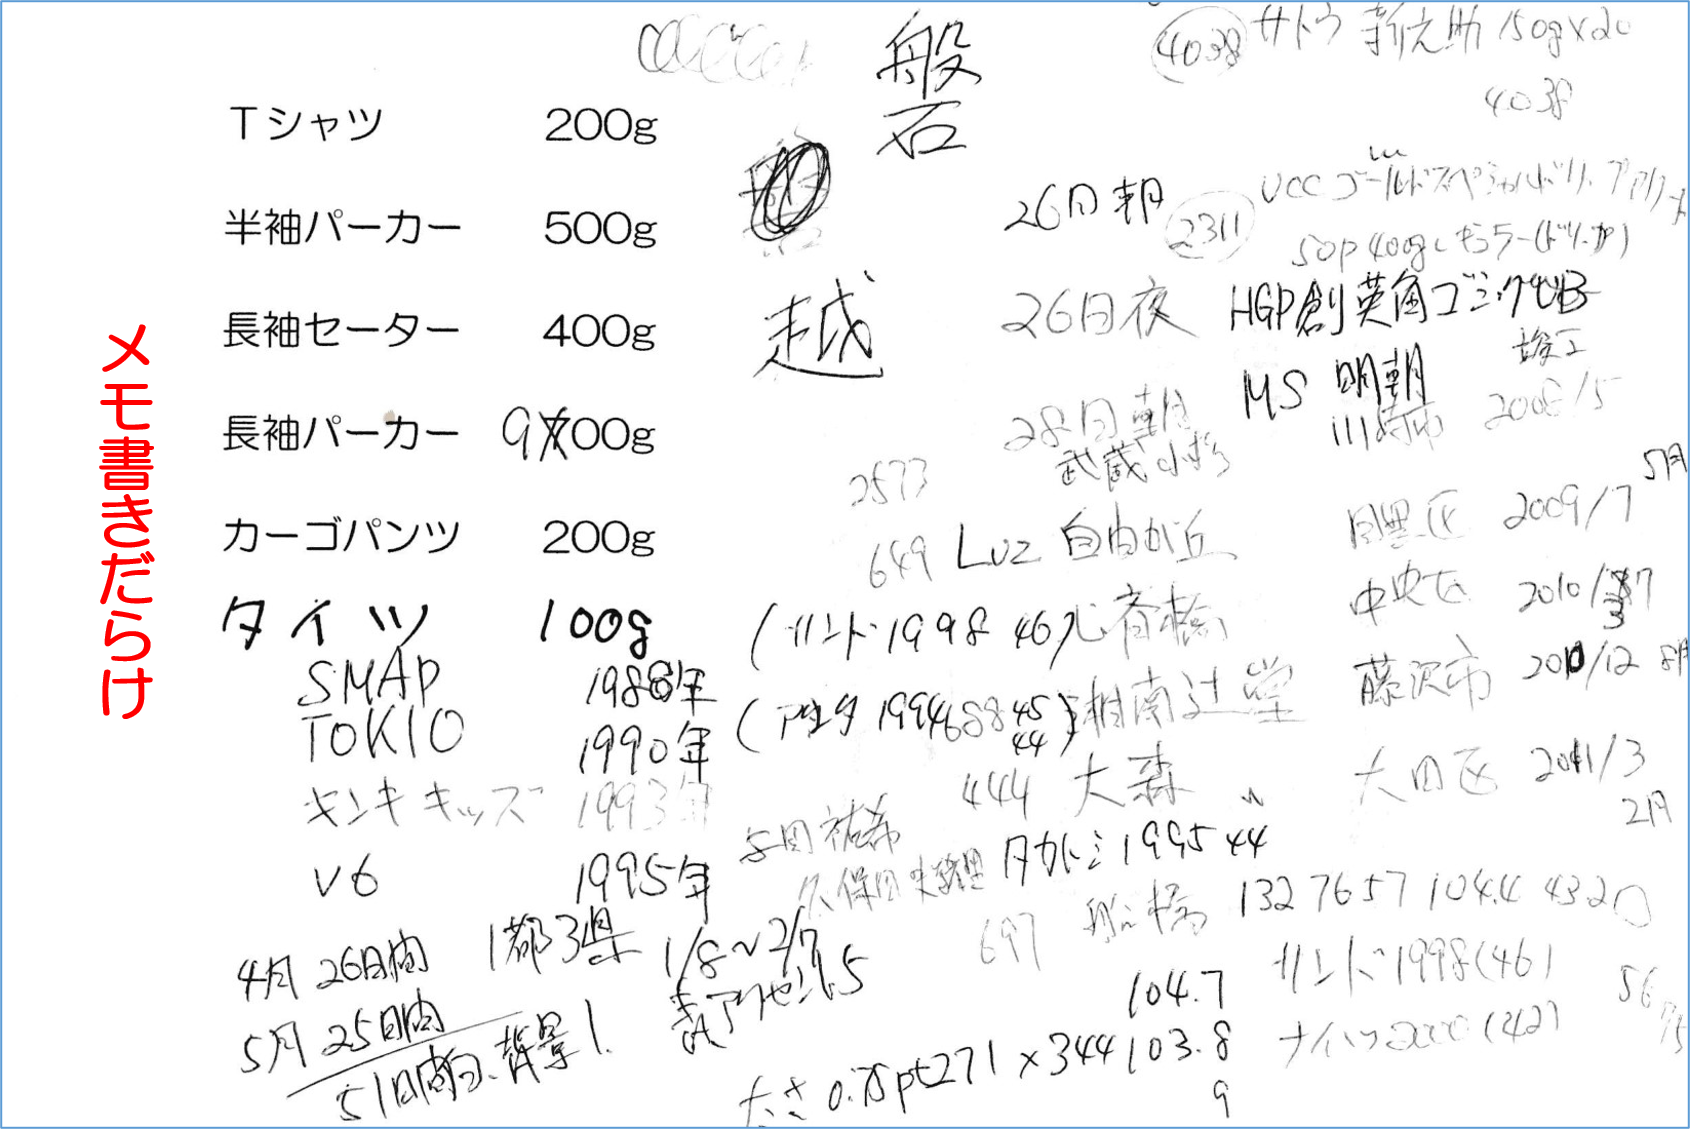 メモ書きだらけ
Tシャツ 200g
半袖パーカー 500g
長袖セーター 400g
長袖パーカー 900g
カーゴパンツ 200g
タイツ 100g
SMAP 1988年
TOKIO 1990年
キンキキッズ 1993年
V6 1995年
4月 26日間
5月 25日間
51日間 背景1
1都3県
1/8~2/7
表アクセント5
磐
越
4038 サトウ 新之助 150g×20
4038
26日朝
2311
UCCゴールドスペシャル
50p 400g
26日夜
HGP創英角ゴシックUB
竣工
MS 明朝
28日朝
武蔵小杉 川崎市 2008/5
2573
5月
649 Luz 自由が丘 目黒区 2009/7
(サンド 1998 46) 心斎橋 中央区 2010/
湘南辻堂 藤沢市 12 8月
444 大森 大田区 2011/3
2月
タカトシ 1995 44
697 船橋 132 7657 104.4 4320
サンド 1998(46)
ナイツ 2000 (42)
56
104.7
太さ 0.75pt 271×344 103.8
9